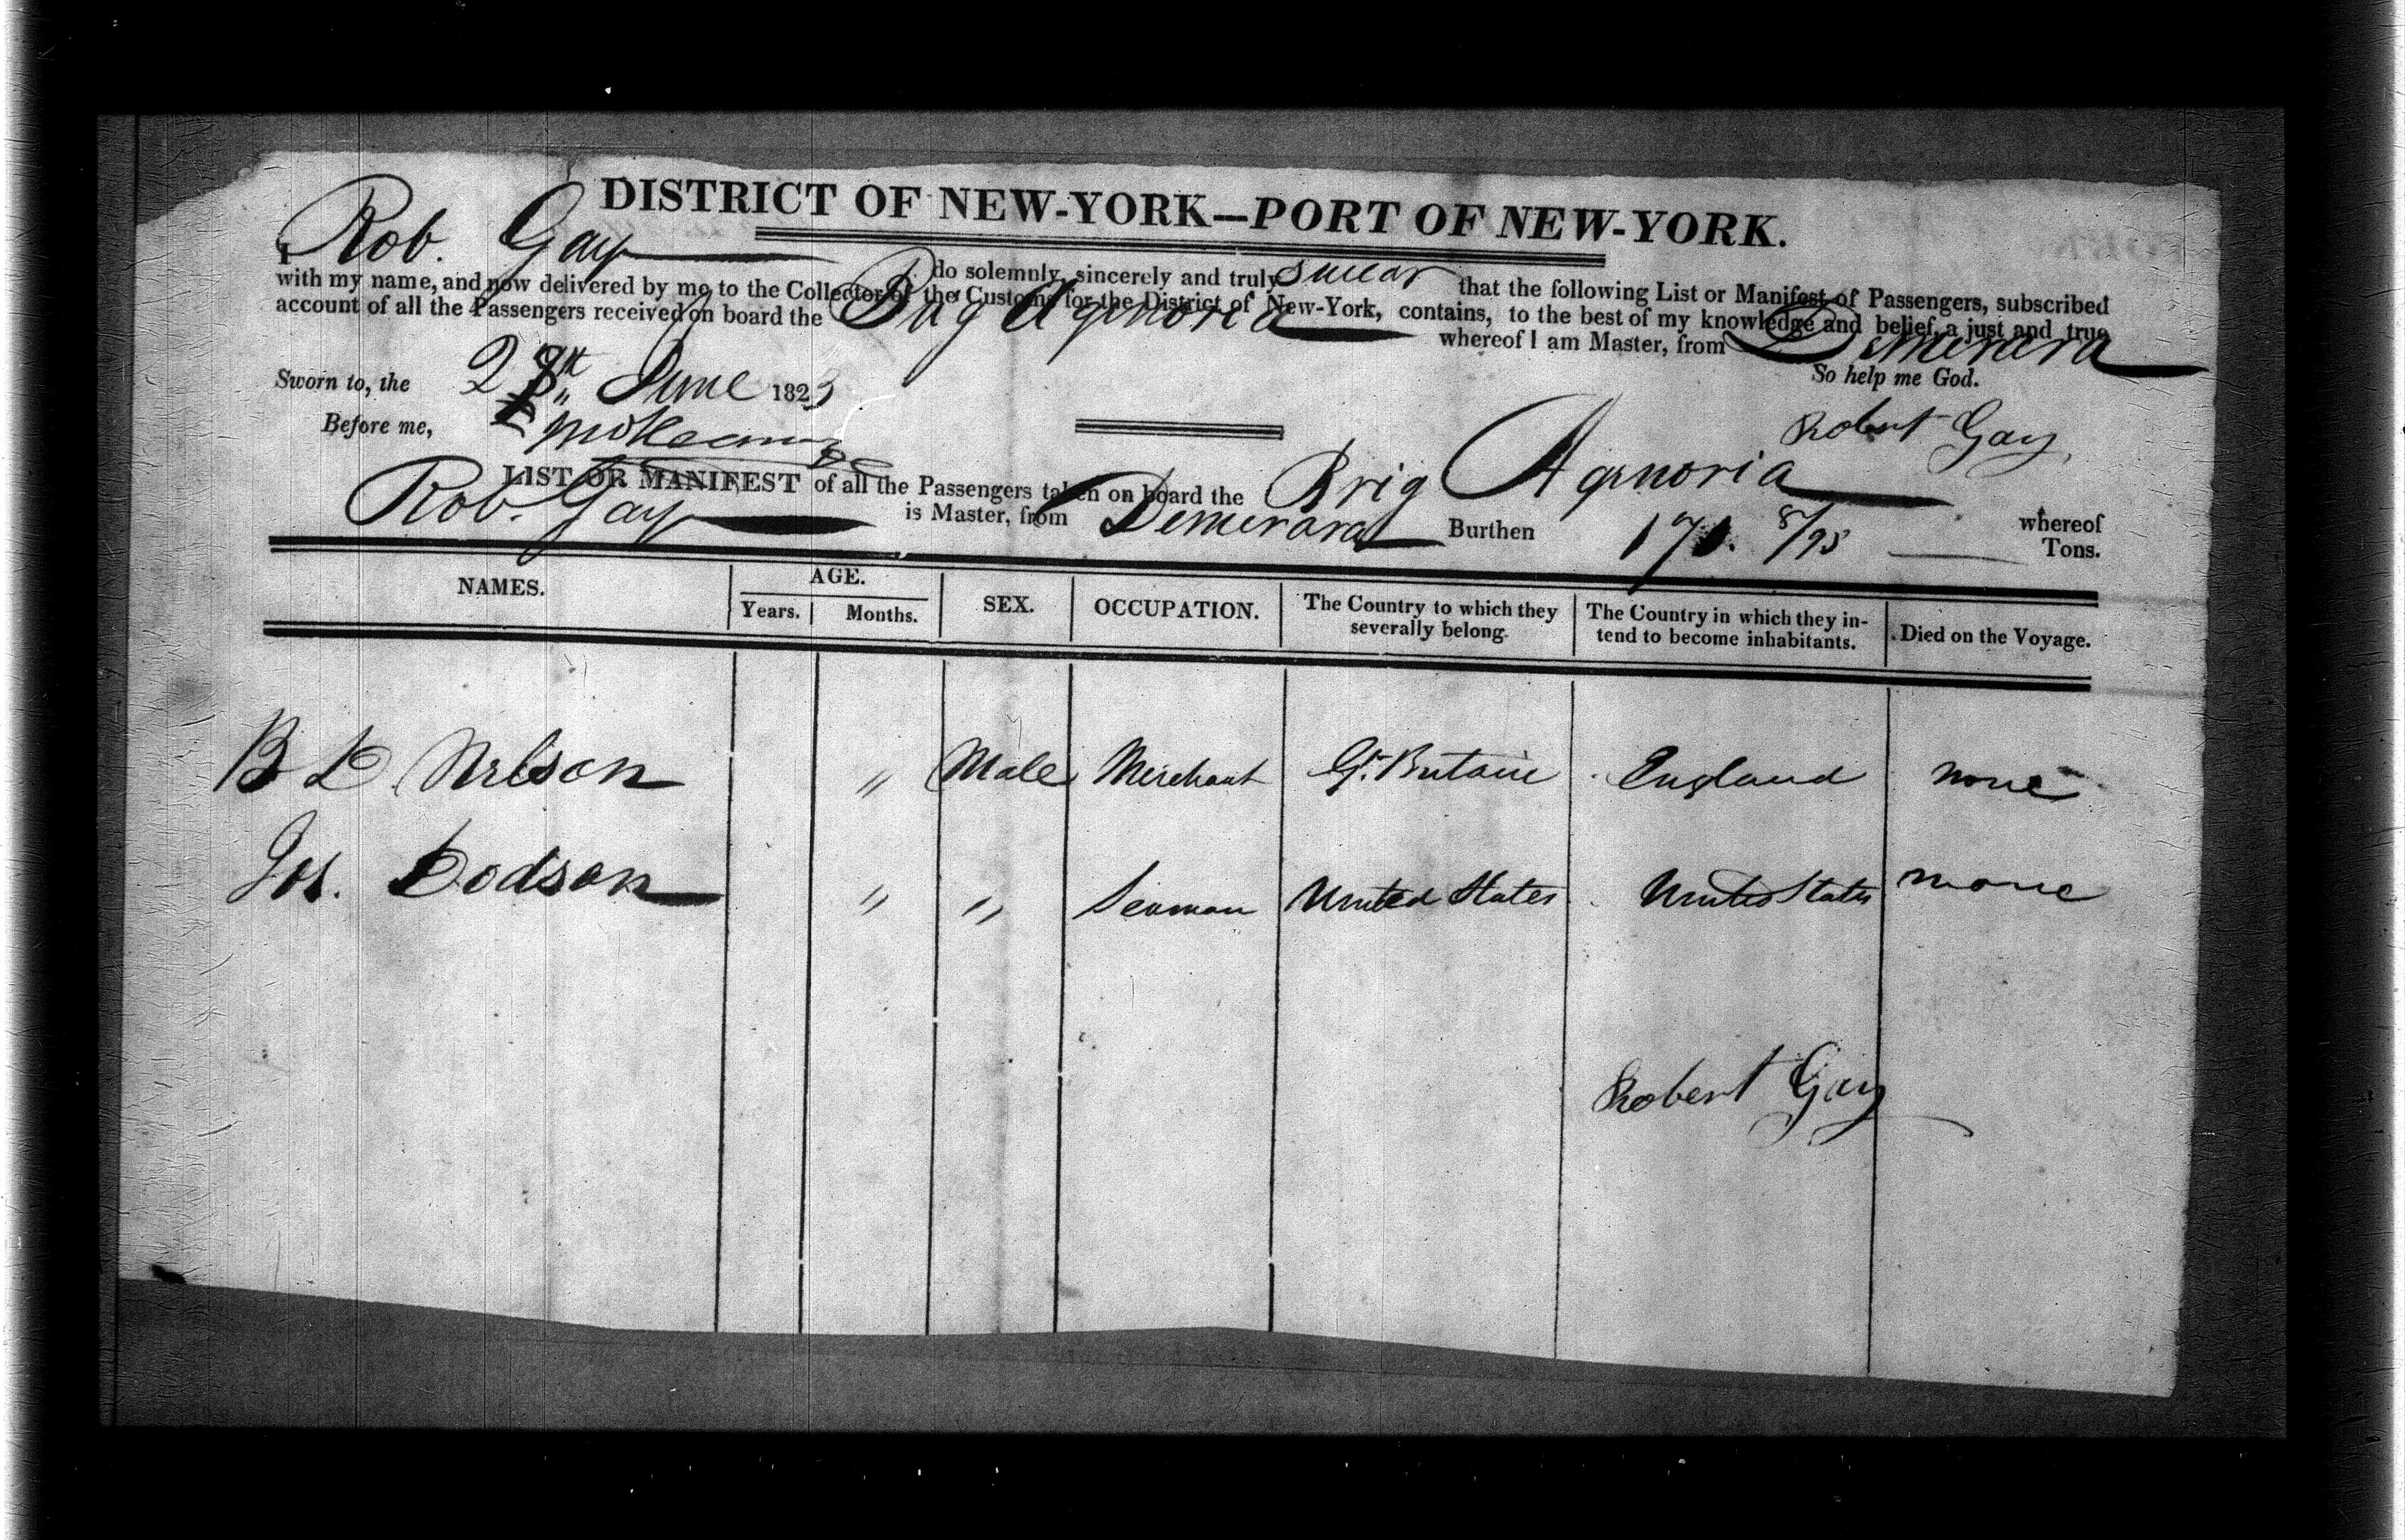 DISTRICT OF NEW-YORK—PORT OF NEW-YORK.
I Rob. Gay do solemnly, sincerely and truly swear that the following List or Manifest of Passengers, subscribed
with my name, and now delivered by me to the Collector of the Customs for the District of New-York, contains, to the best of my knowledge and belief, a just and true
account of all the Passengers received on board the Brig Agenoria whereof I am Master, from Demerara
Sworn to, the June 1823 So help me God.
Before me, Robert Gay
LIST OR MANIFEST of all the Passengers taken on board the Brig Agenoria whereof
Rob. Gay is Master, from Demerara Burthen 171. 8/95 Tons.
NAMES. AGE. SEX. OCCUPATION. The Country to which they severally belong. The Country in which they intend to become inhabitants. Died on the Voyage.
Years. Months.
B L Nelson " Male Merchant Gt. Britain England none
Jos. Dodson " " Seaman United States United States none
Robert Gay